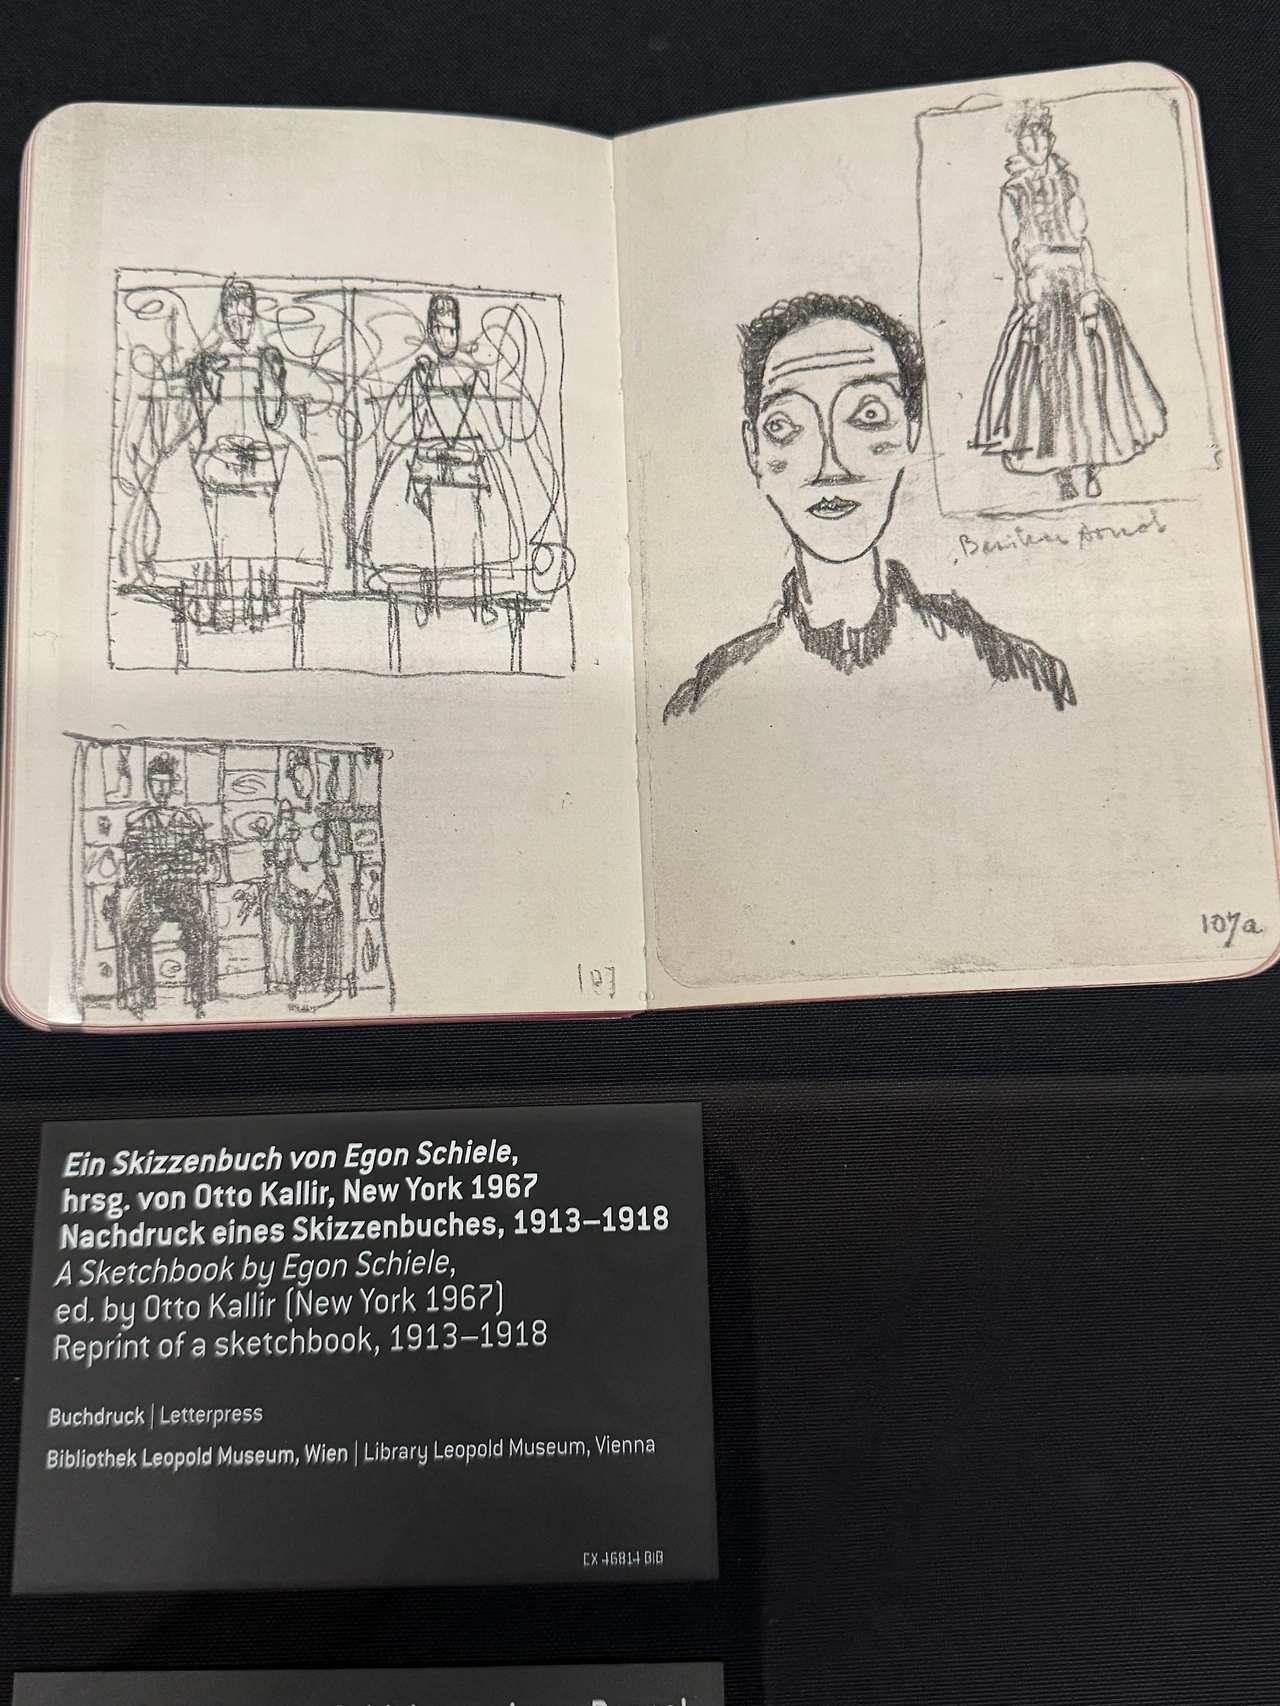 107
107a
Ein Skizzenbuch von Egon Schiele,
hrsg. von Otto Kallir, New York 1967
Nachdruck eines Skizzenbuches, 1913–1918
A Sketchbook by Egon Schiele,
ed. by Otto Kallir (New York 1967)
Reprint of a sketchbook, 1913–1918
Buchdruck | Letterpress
Bibliothek Leopold Museum, Wien | Library Leopold Museum, Vienna
EX 46814 BIB